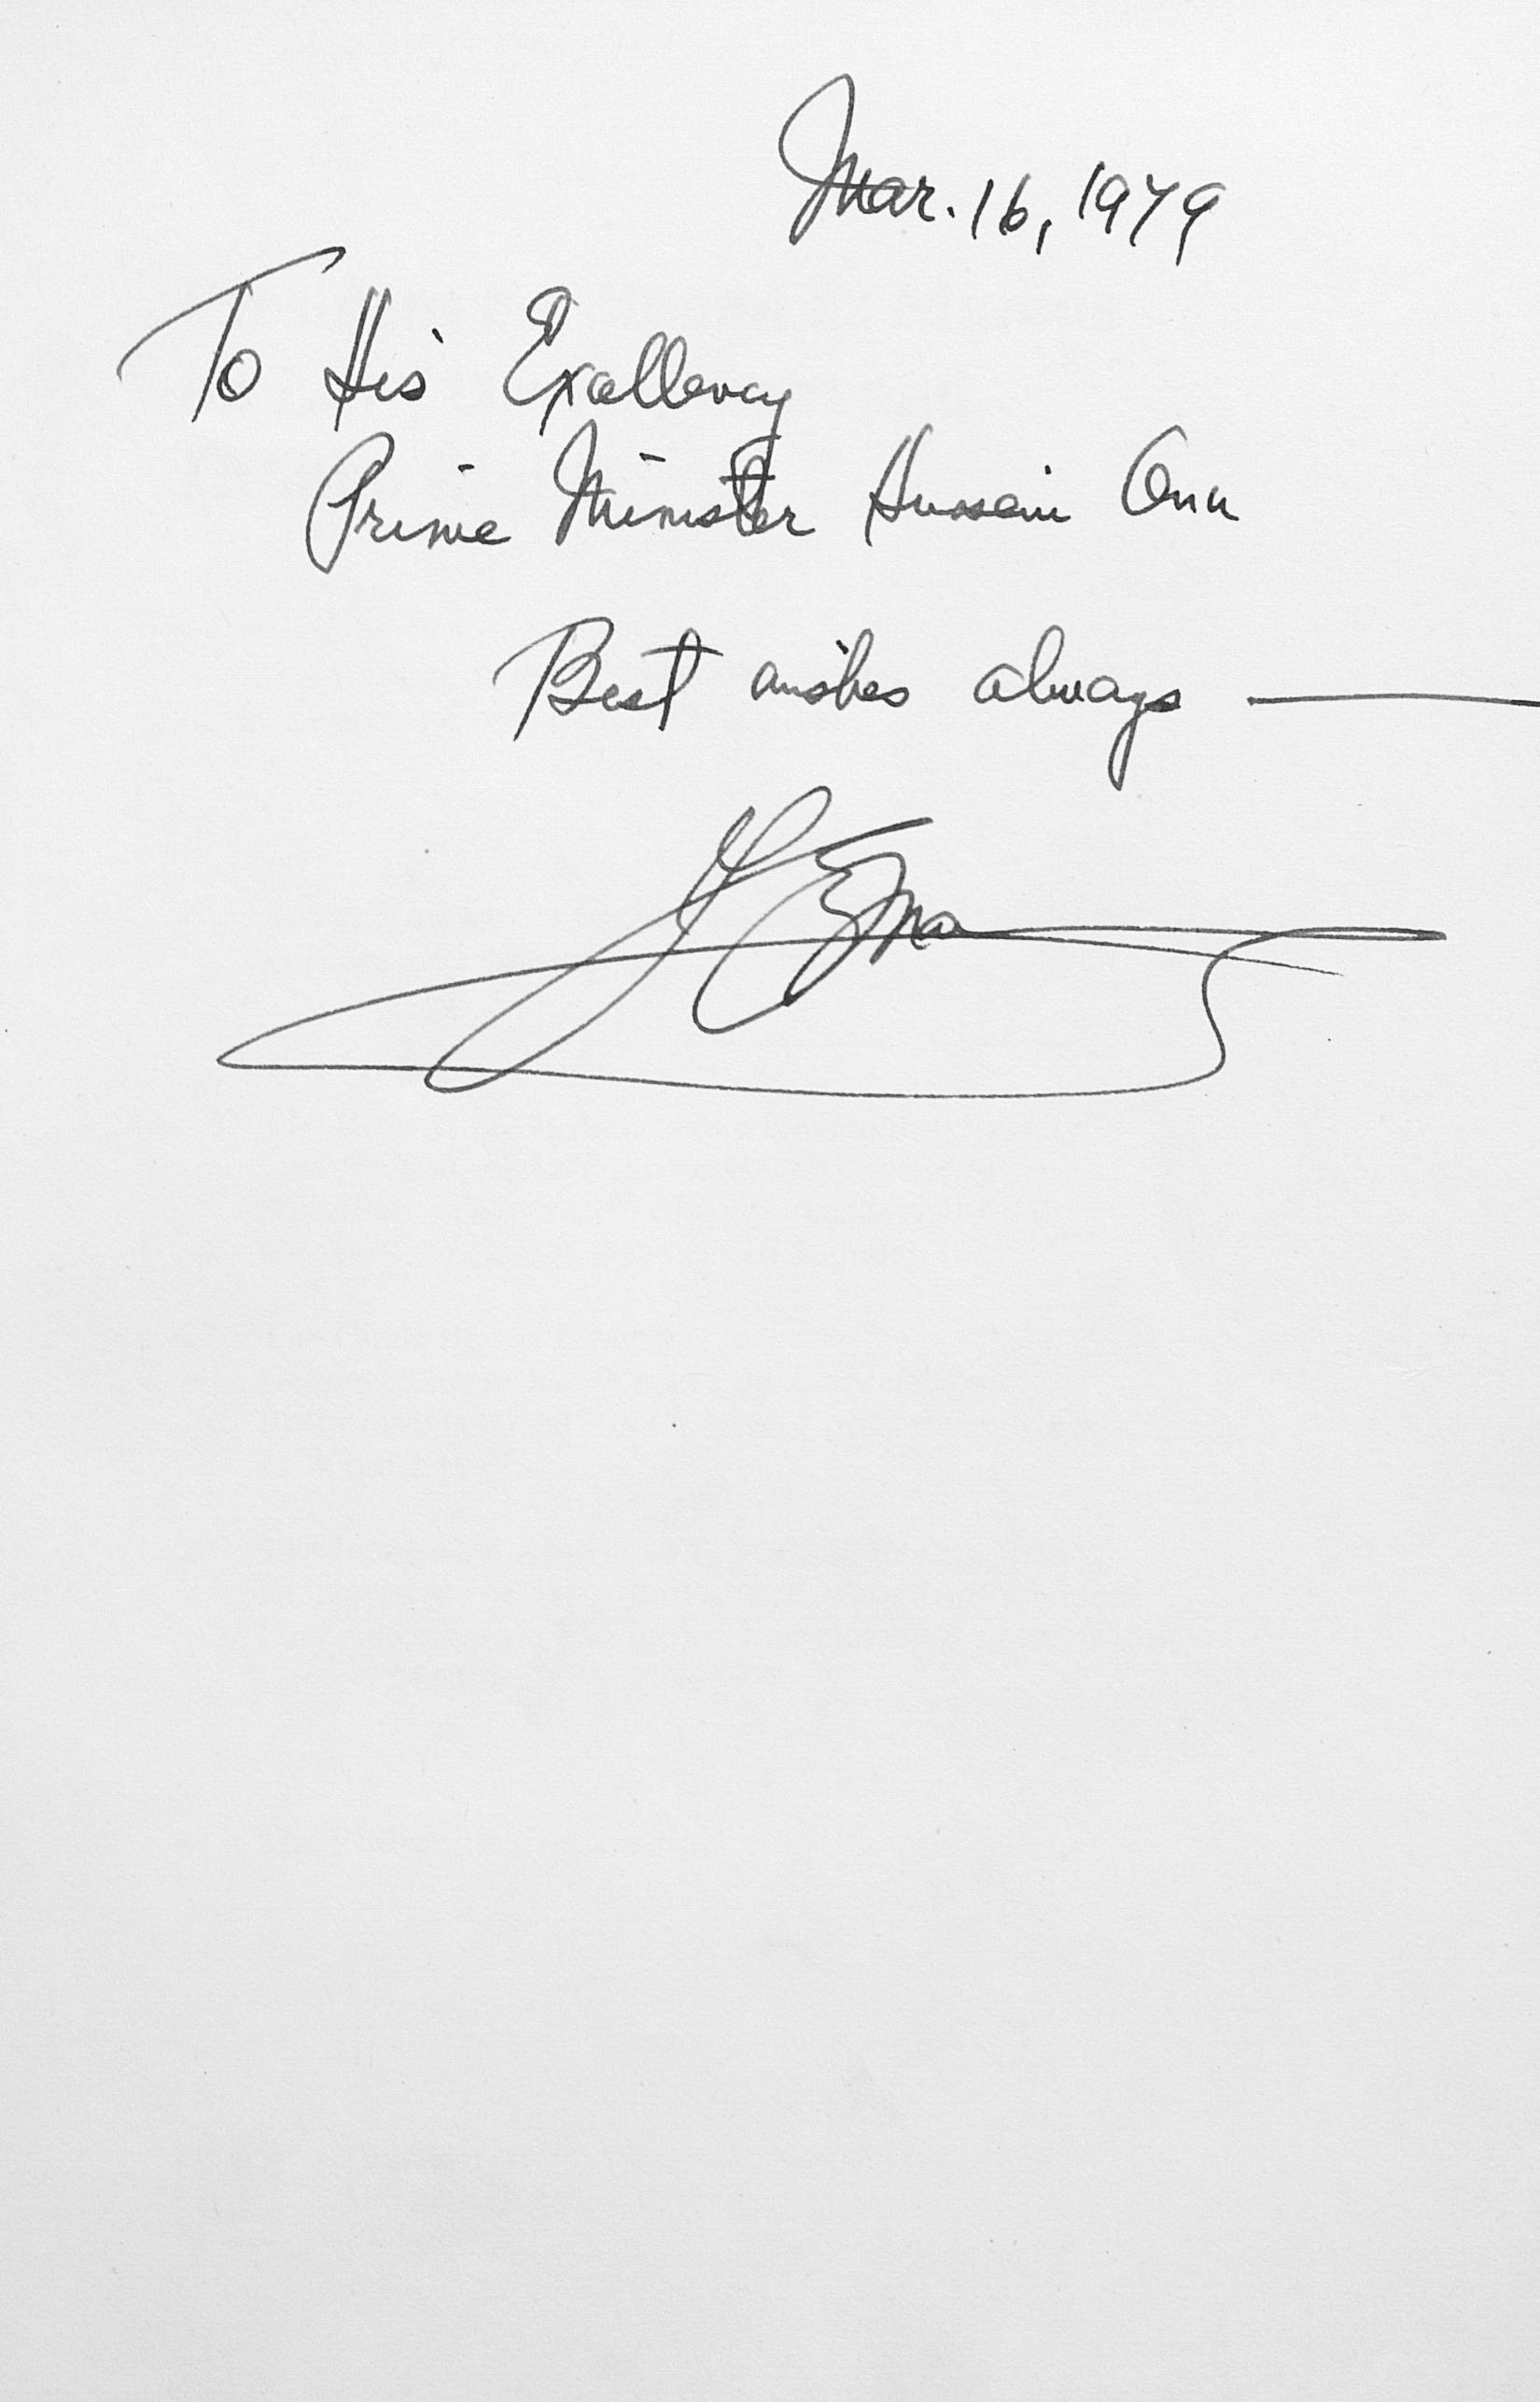 Mar. 16, 1979
To His Excellency
Prime Minister Hussein Onn
Best wishes always —